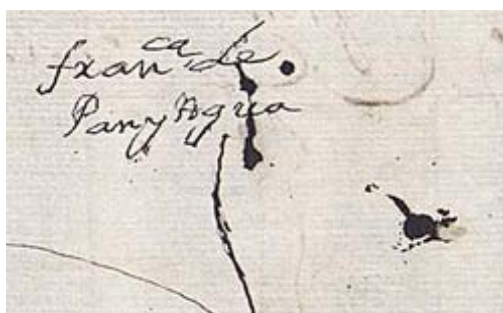 fran.ca de
Pany Agua